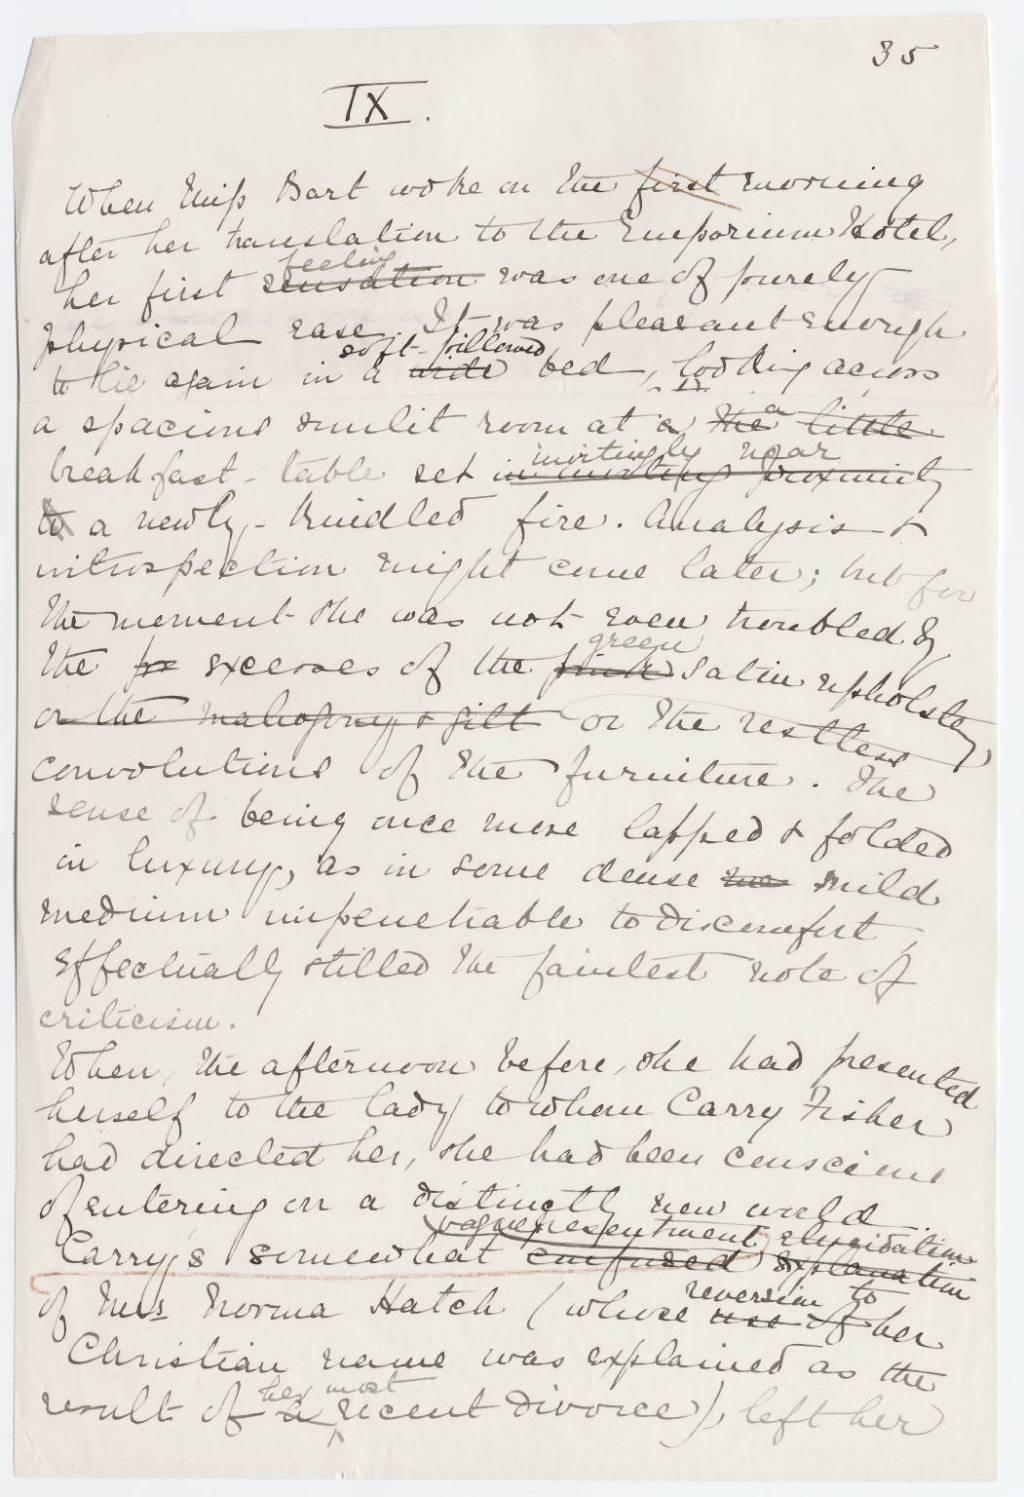 35
IX.
When Miss Bart woke on the first morning
after her translation to the Emporium Hotel,
feeling
her first sensation was one of purely
physical ease. It was pleasant enough
soft-pillowed
to lie again in a wide bed, looking across
a spacious sunlit room at a the a little
invitingly near
breakfast-table set in inviting proximity
to a newly-kindled fire. Analysis &
introspection might come later; but for
the moment she was not even troubled by
green
the excesses of the pink satin upholstery,
or the mahogany & gilt or the restless
convolutions of the furniture. The
sense of being once more lapped & folded
in luxury, as in some dense mild
medium impenetrable to discomfort,
effectually stilled the faintest note of
criticism.
When, the afternoon before, she had presented
herself to the lady to whom Carry Fisher
had directed her, she had been conscious
of entering on a distinctly new world.
vague presentment elucidation
Carry's somewhat confused explanation
reversion to
of Mrs Norma Hatch (whose use of her
Christian name was explained as the
her most
result of a recent divorce), left her